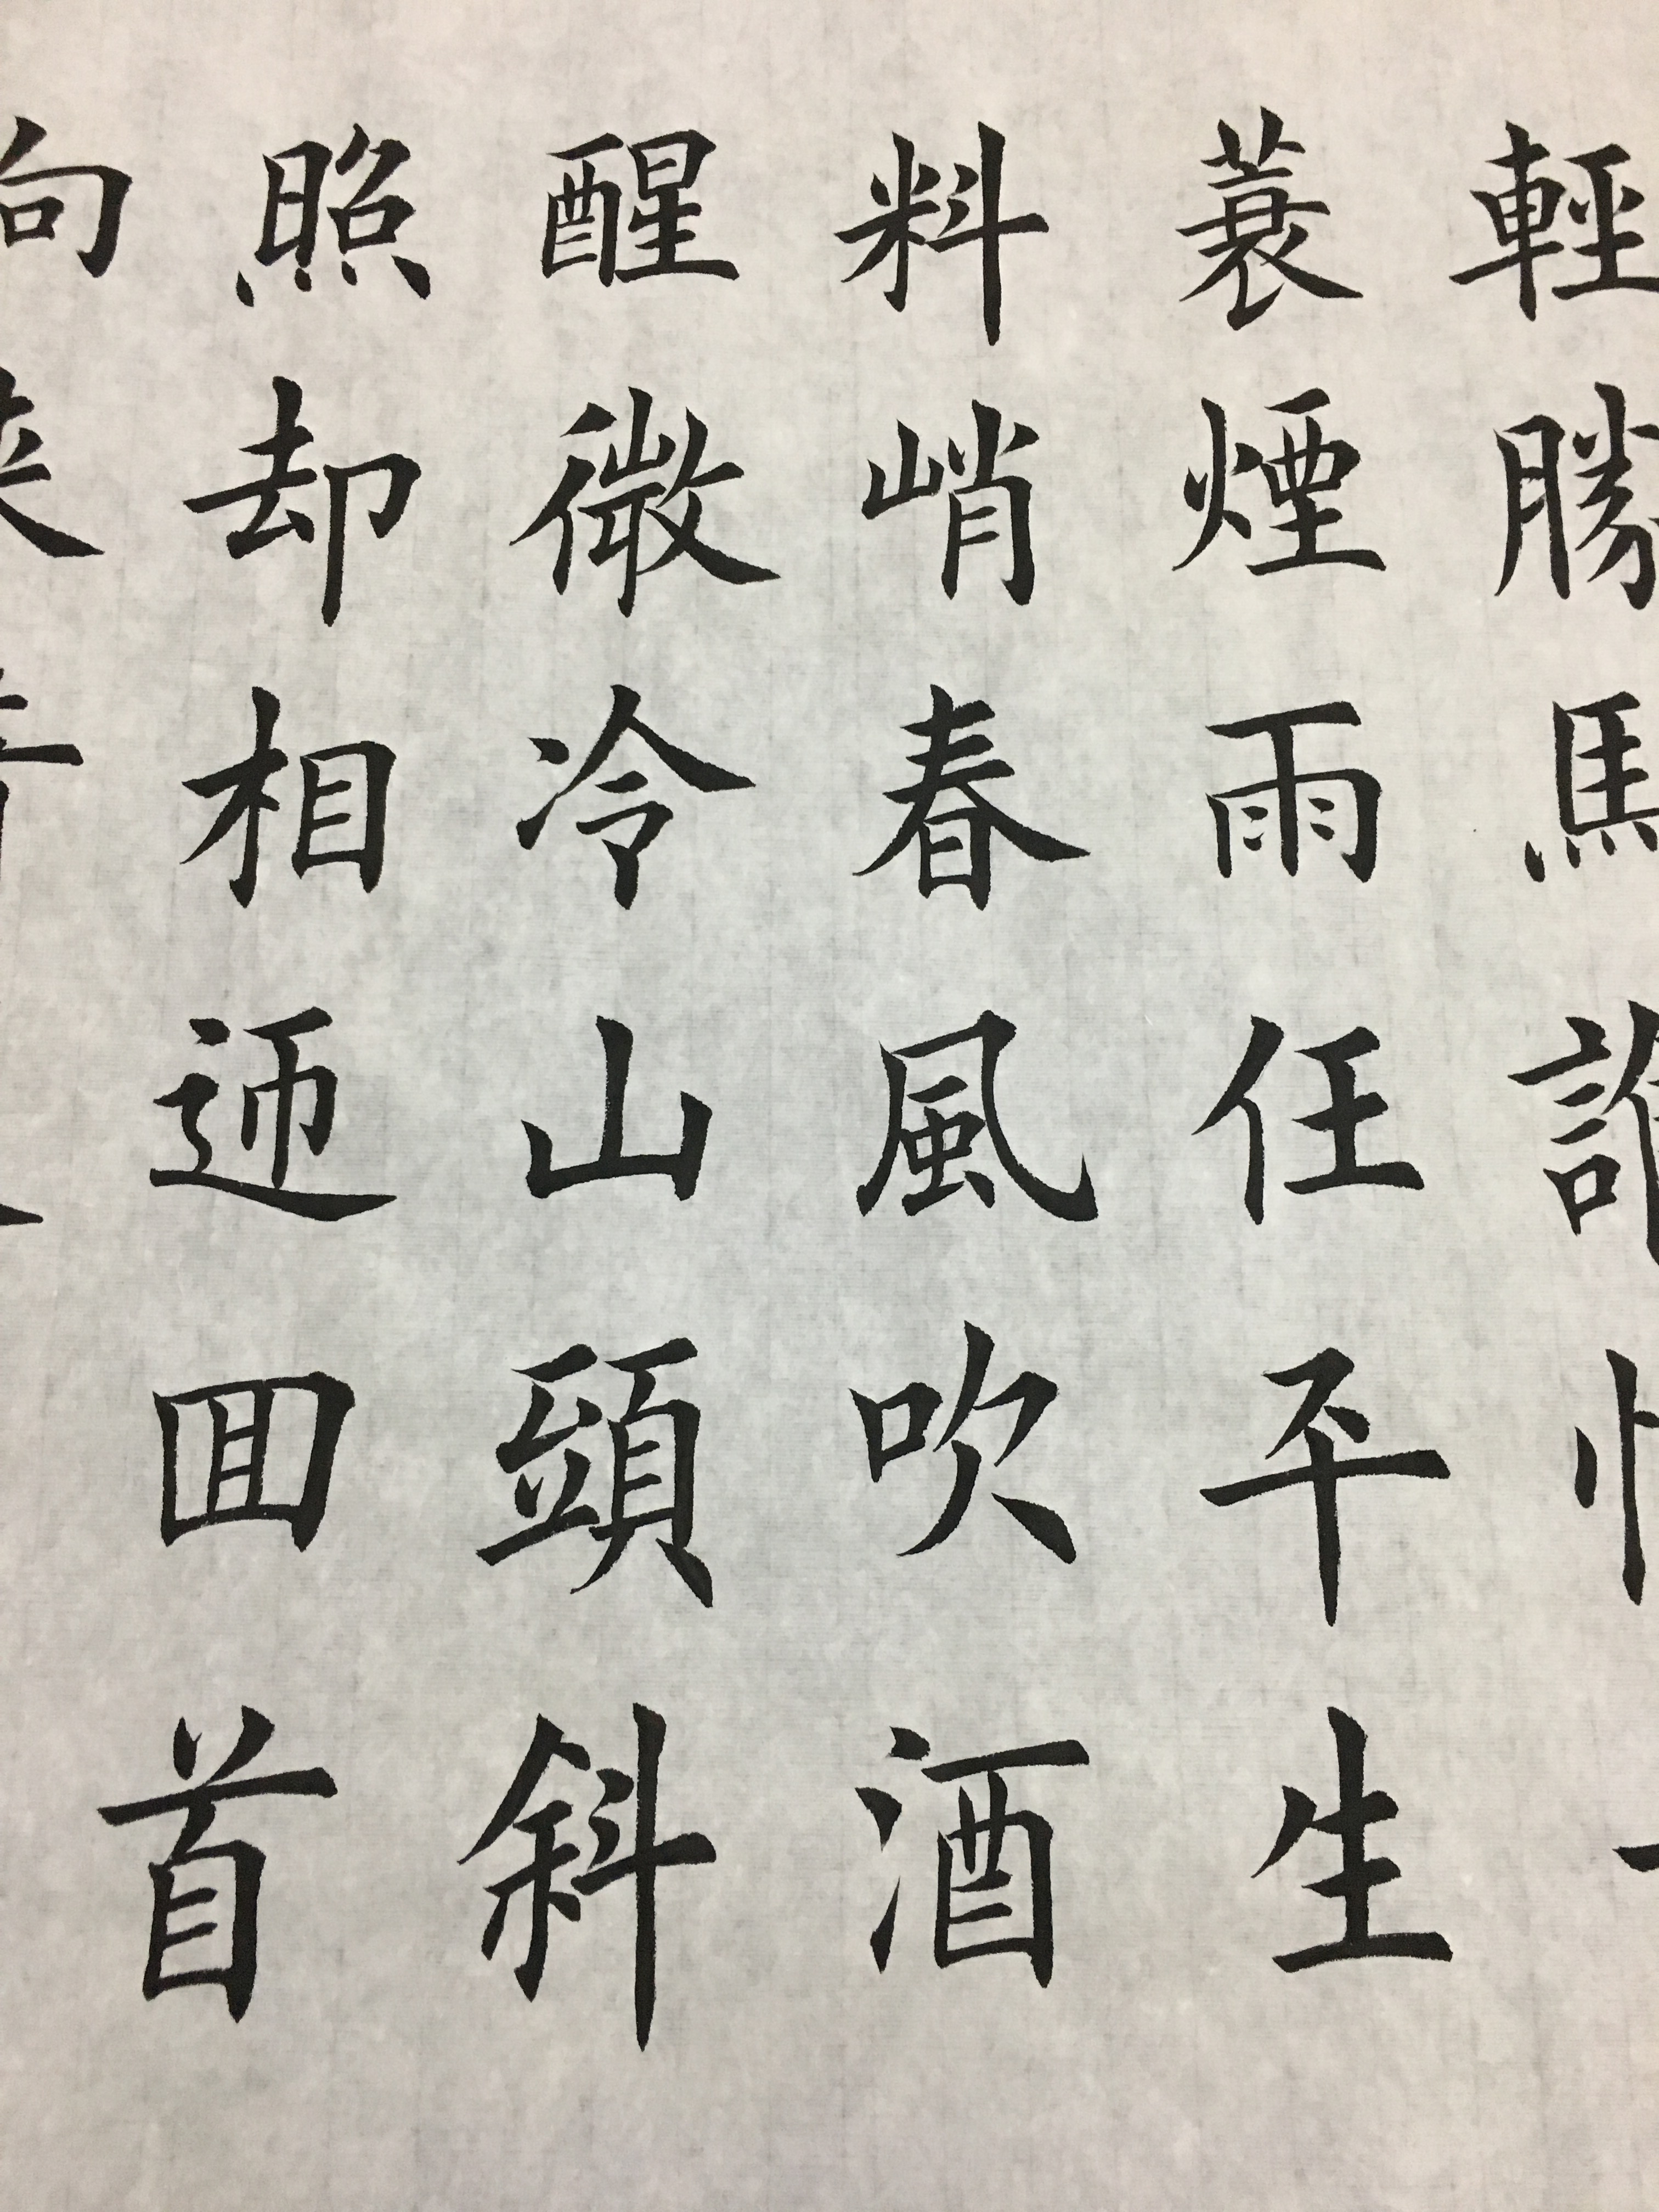 輕勝馬誰
蓑煙雨任平生
料峭春風吹酒
醒微冷山頭斜
照却相迊囬首
向